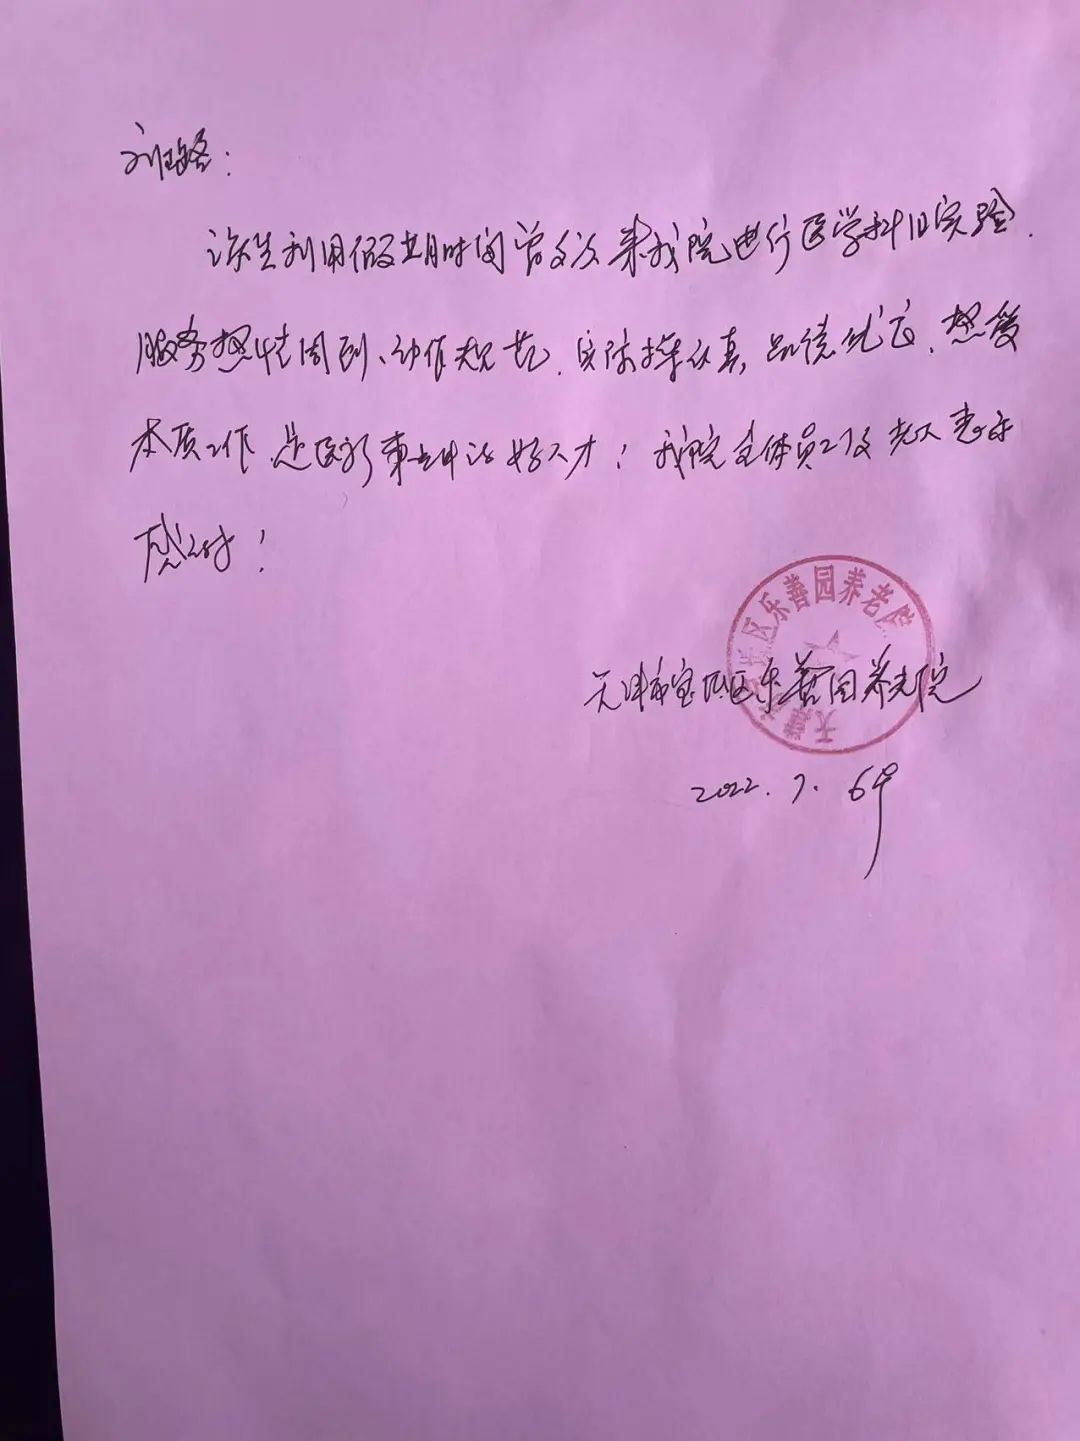 刘璐：
该生利用假期时间曾多次来我院进行医学科目实验.
服务热情周到、动作规范.实际操作认真,品德优良.热爱
本质工作.是医疗事业中的好人才！我院全体员工及老人表示
感谢！
区乐善园养老院
天津市宝坻区乐善园养老院
2022.7.6号